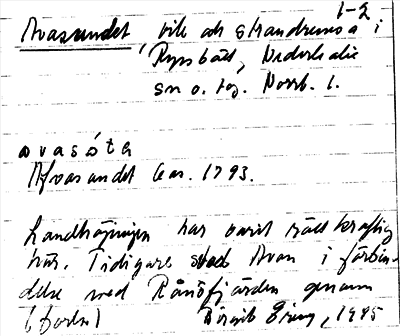 1-2
Avasundet, vik och strandremsa i
Ryssbält, Nederkalix
sn o. tg. Norrb. l.
avasóta
Afvasundet Gar. 1793.
Landhöjningen har varit rätt kraftig
här. Tidigare stod Avan i förbin-
delse med Rånöfjärden genom
Birgit 1985